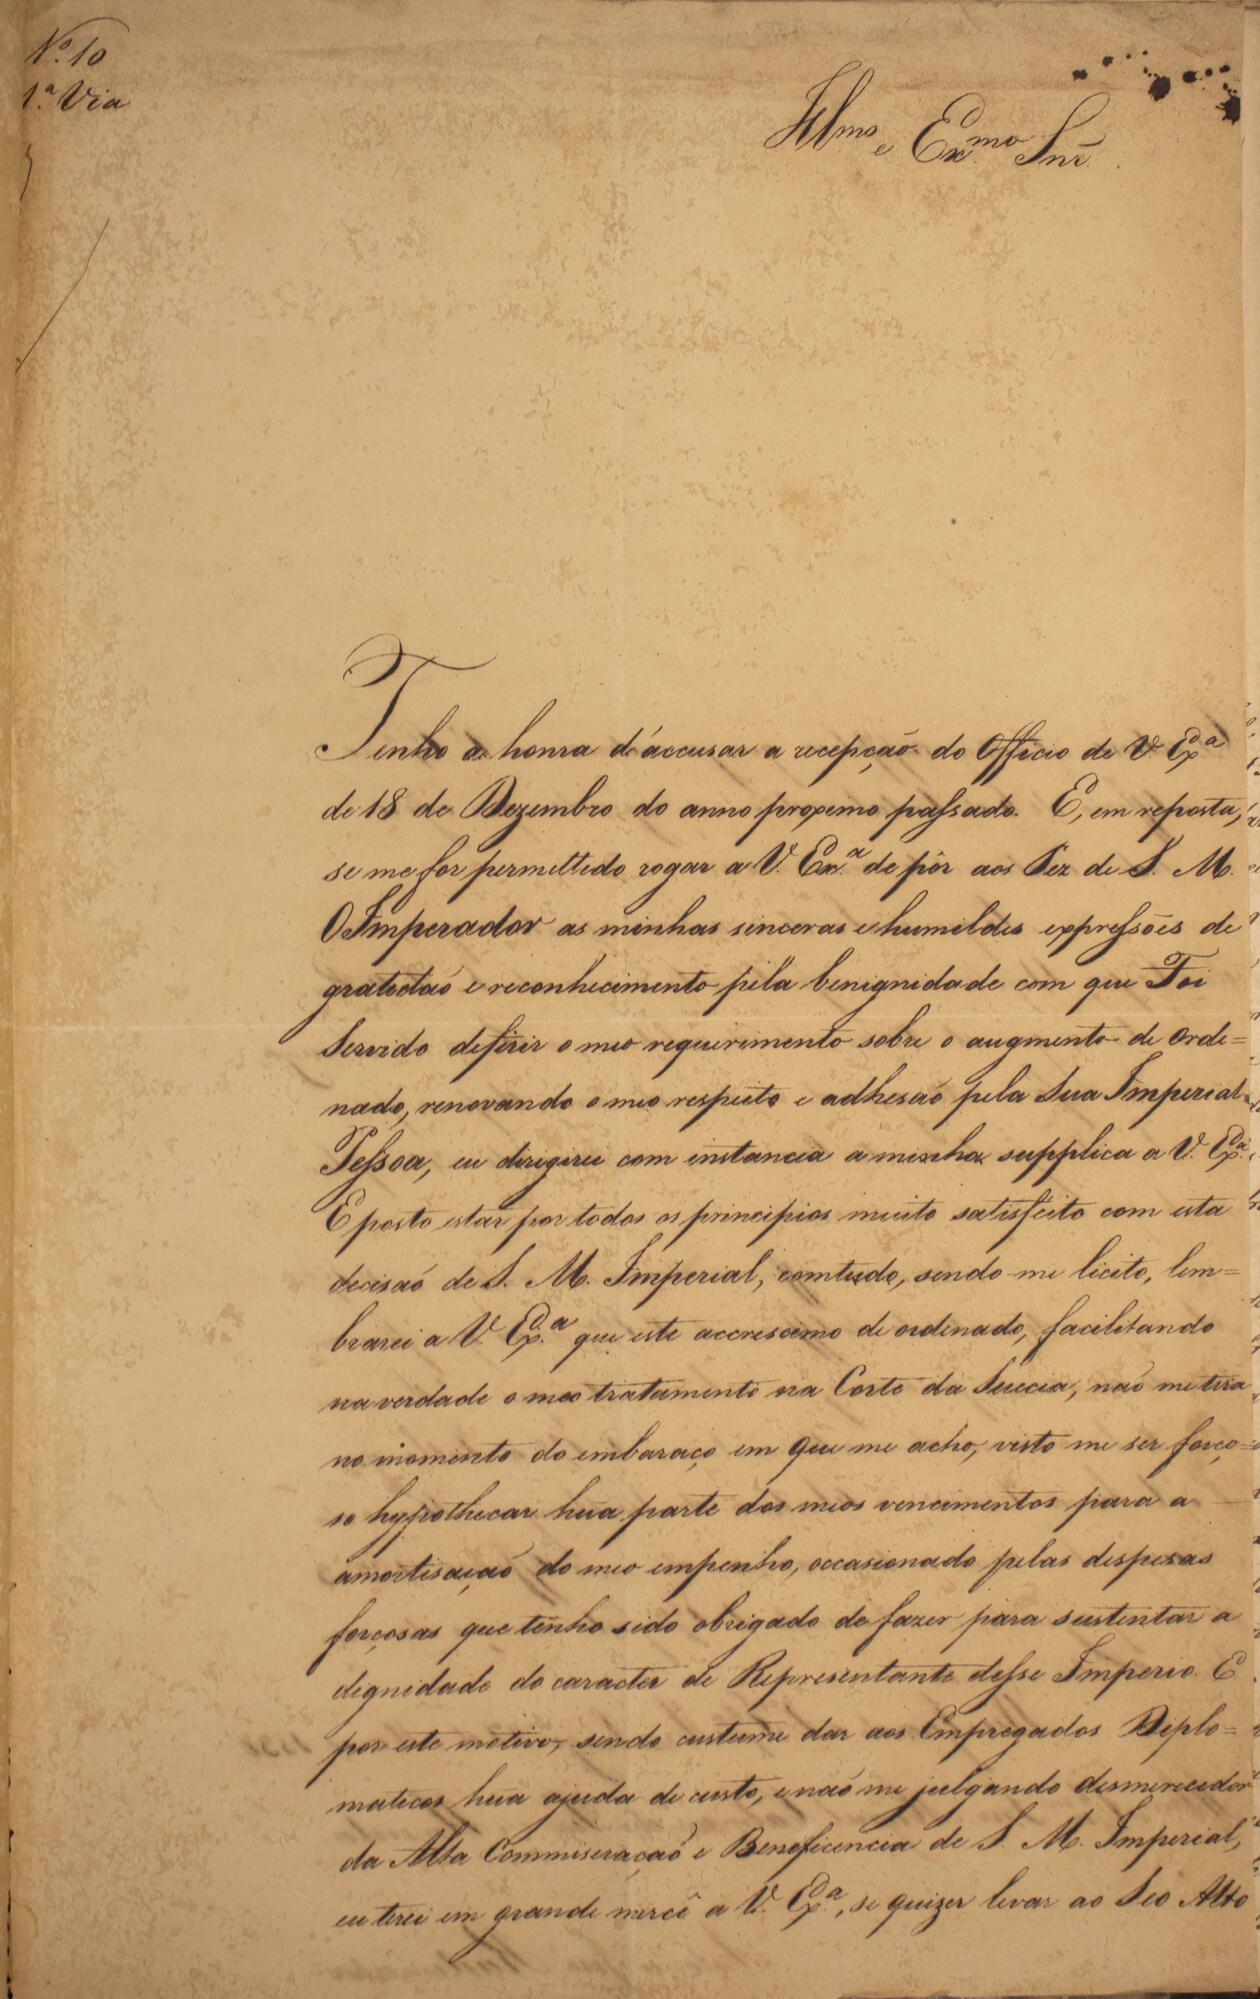 Nº 10
1ª Via
Illmo e Exmo Snr.
Tenho a honra d'accusar a recepção do Officio de V. Exª
de 18 de Dezembro do anno proximo passado. E, em reposta,
se me for permettedo rogar a V. Exª de pôr aos Pez de S. M.
O Imperador as minhas sinceras e humildes expressões de
gratectaõ e reconhecimento pela benignidade com que Foi
Servido deferir o meo requerimento sobre o augmento de orde=
nado, renovando o meo respeito e adhesaõ pela Sua Imperial
Pessoa, eu dirigerei com instancia a minha supplica a V. Exª.
E posto estar por todos os principios muito satisfeito com esta
decisaõ de S. M. Imperial, comtudo, sendo-me licito, lem=
brarei a V. Exª que este accrescimo de ordenado, facilitando
na verdade o meo tratamento na Corte da Suecia, naõ me tira
no momento do embaraço em que me acho, visto me ser força=
so hypothecar hua parte dos meos vencimentos para a
amortisaçaõ do meo empenho, occasionado pelas despesas
forçosas que tenho sido obrigado de fazer para sustentar a
degnidade do caracter de Representante desse Imperio. E
por este motivo, sendo custume dar aos Empregados Deplo=
maticos hua ajuda de custo, e naõ me julgando desmerecedor
da Alta Commiseraçaõ e Beneficencia de S. M. Imperial,
eu terei em grande mercê a V. Exª, se quizer levar ao Seo Alto